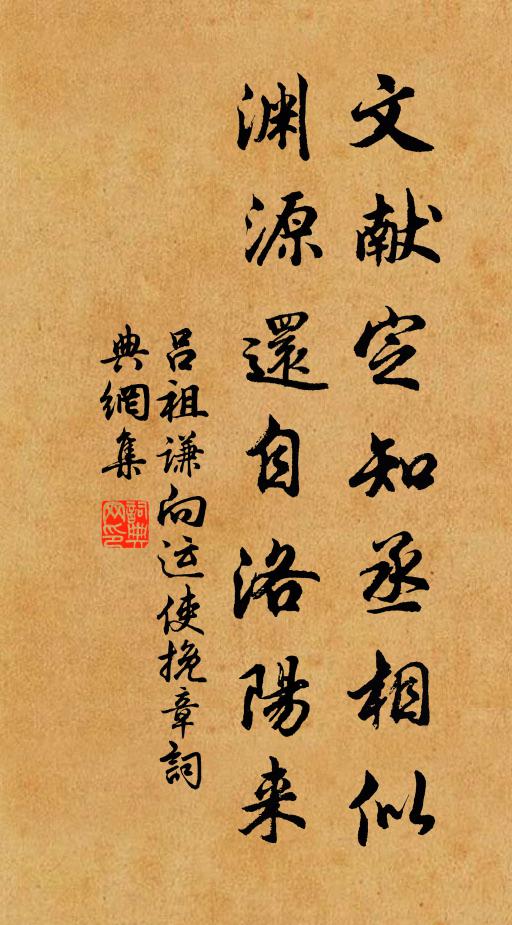 文献定知丞相似
渊源還自洛陽来
吕祖谦向运使挽章詞
典網集
詞典
网印